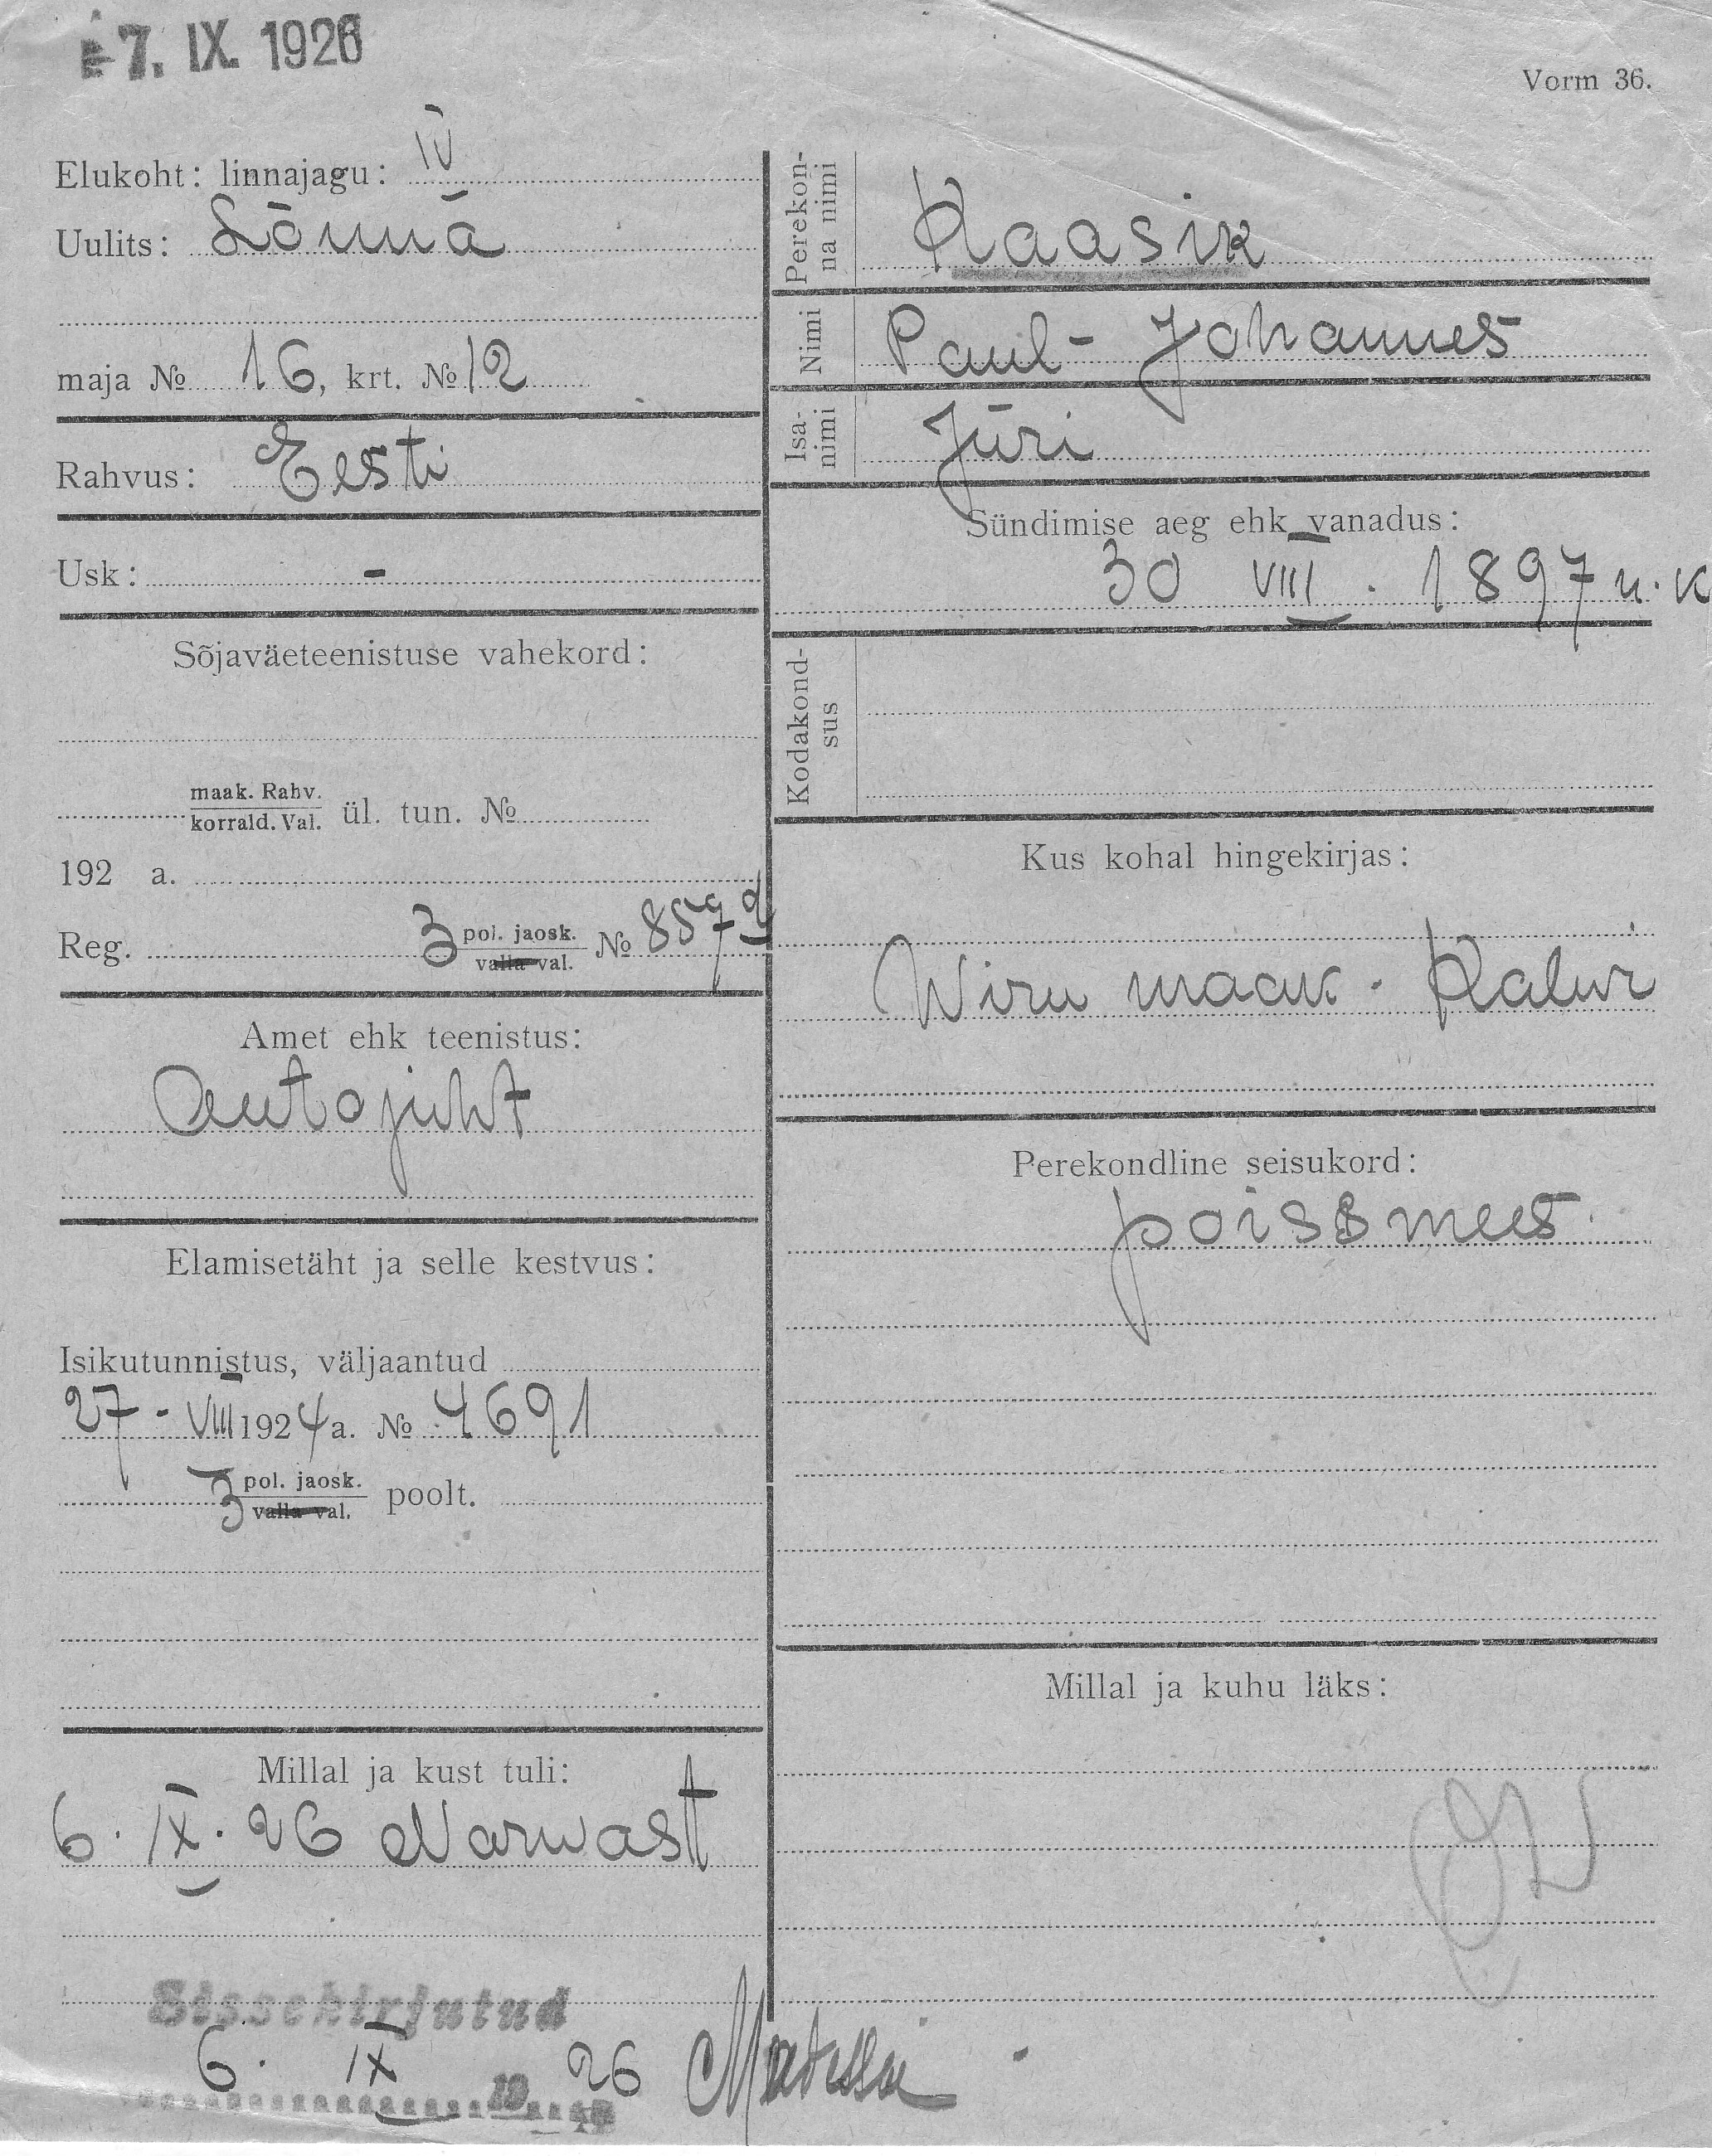 7. IX. 1926
Vorm 36.
Elukoht: linnajagu: IV
Uulits: Lõuna
maja № 16, krt. № 12
Rahvus: Eesti
Usk: -
Sõjaväeteenistuse vahekord:
maak. Rahv.
korrald. Val. ül. tun. №
192 a.
Reg. 3 pol. jaosk. № 8572
valla val.
Amet ehk teenistus:
Autojuht
Elamisetäht ja selle kestvus:
Isikutunnistus, väljaantud
27 - VIII 1924 a. № 4691
3 pol. jaosk. poolt.
valla val.
Millal ja kust tuli:
6. IX. 26 Narwast
Sissekirjutud
6. IX 19 26
Perekon-
na nimi Kaasik
Nimi Paul - Johannes
Isa-
nimi Jüri
Sündimise aeg ehk vanadus:
30 VIII. 1897 u. k
Kodakond-
sus
Kus kohal hingekirjas:
Wiru maak. Kalwi
Perekondline seisukord:
poissmees.
Millal ja kuhu läks: